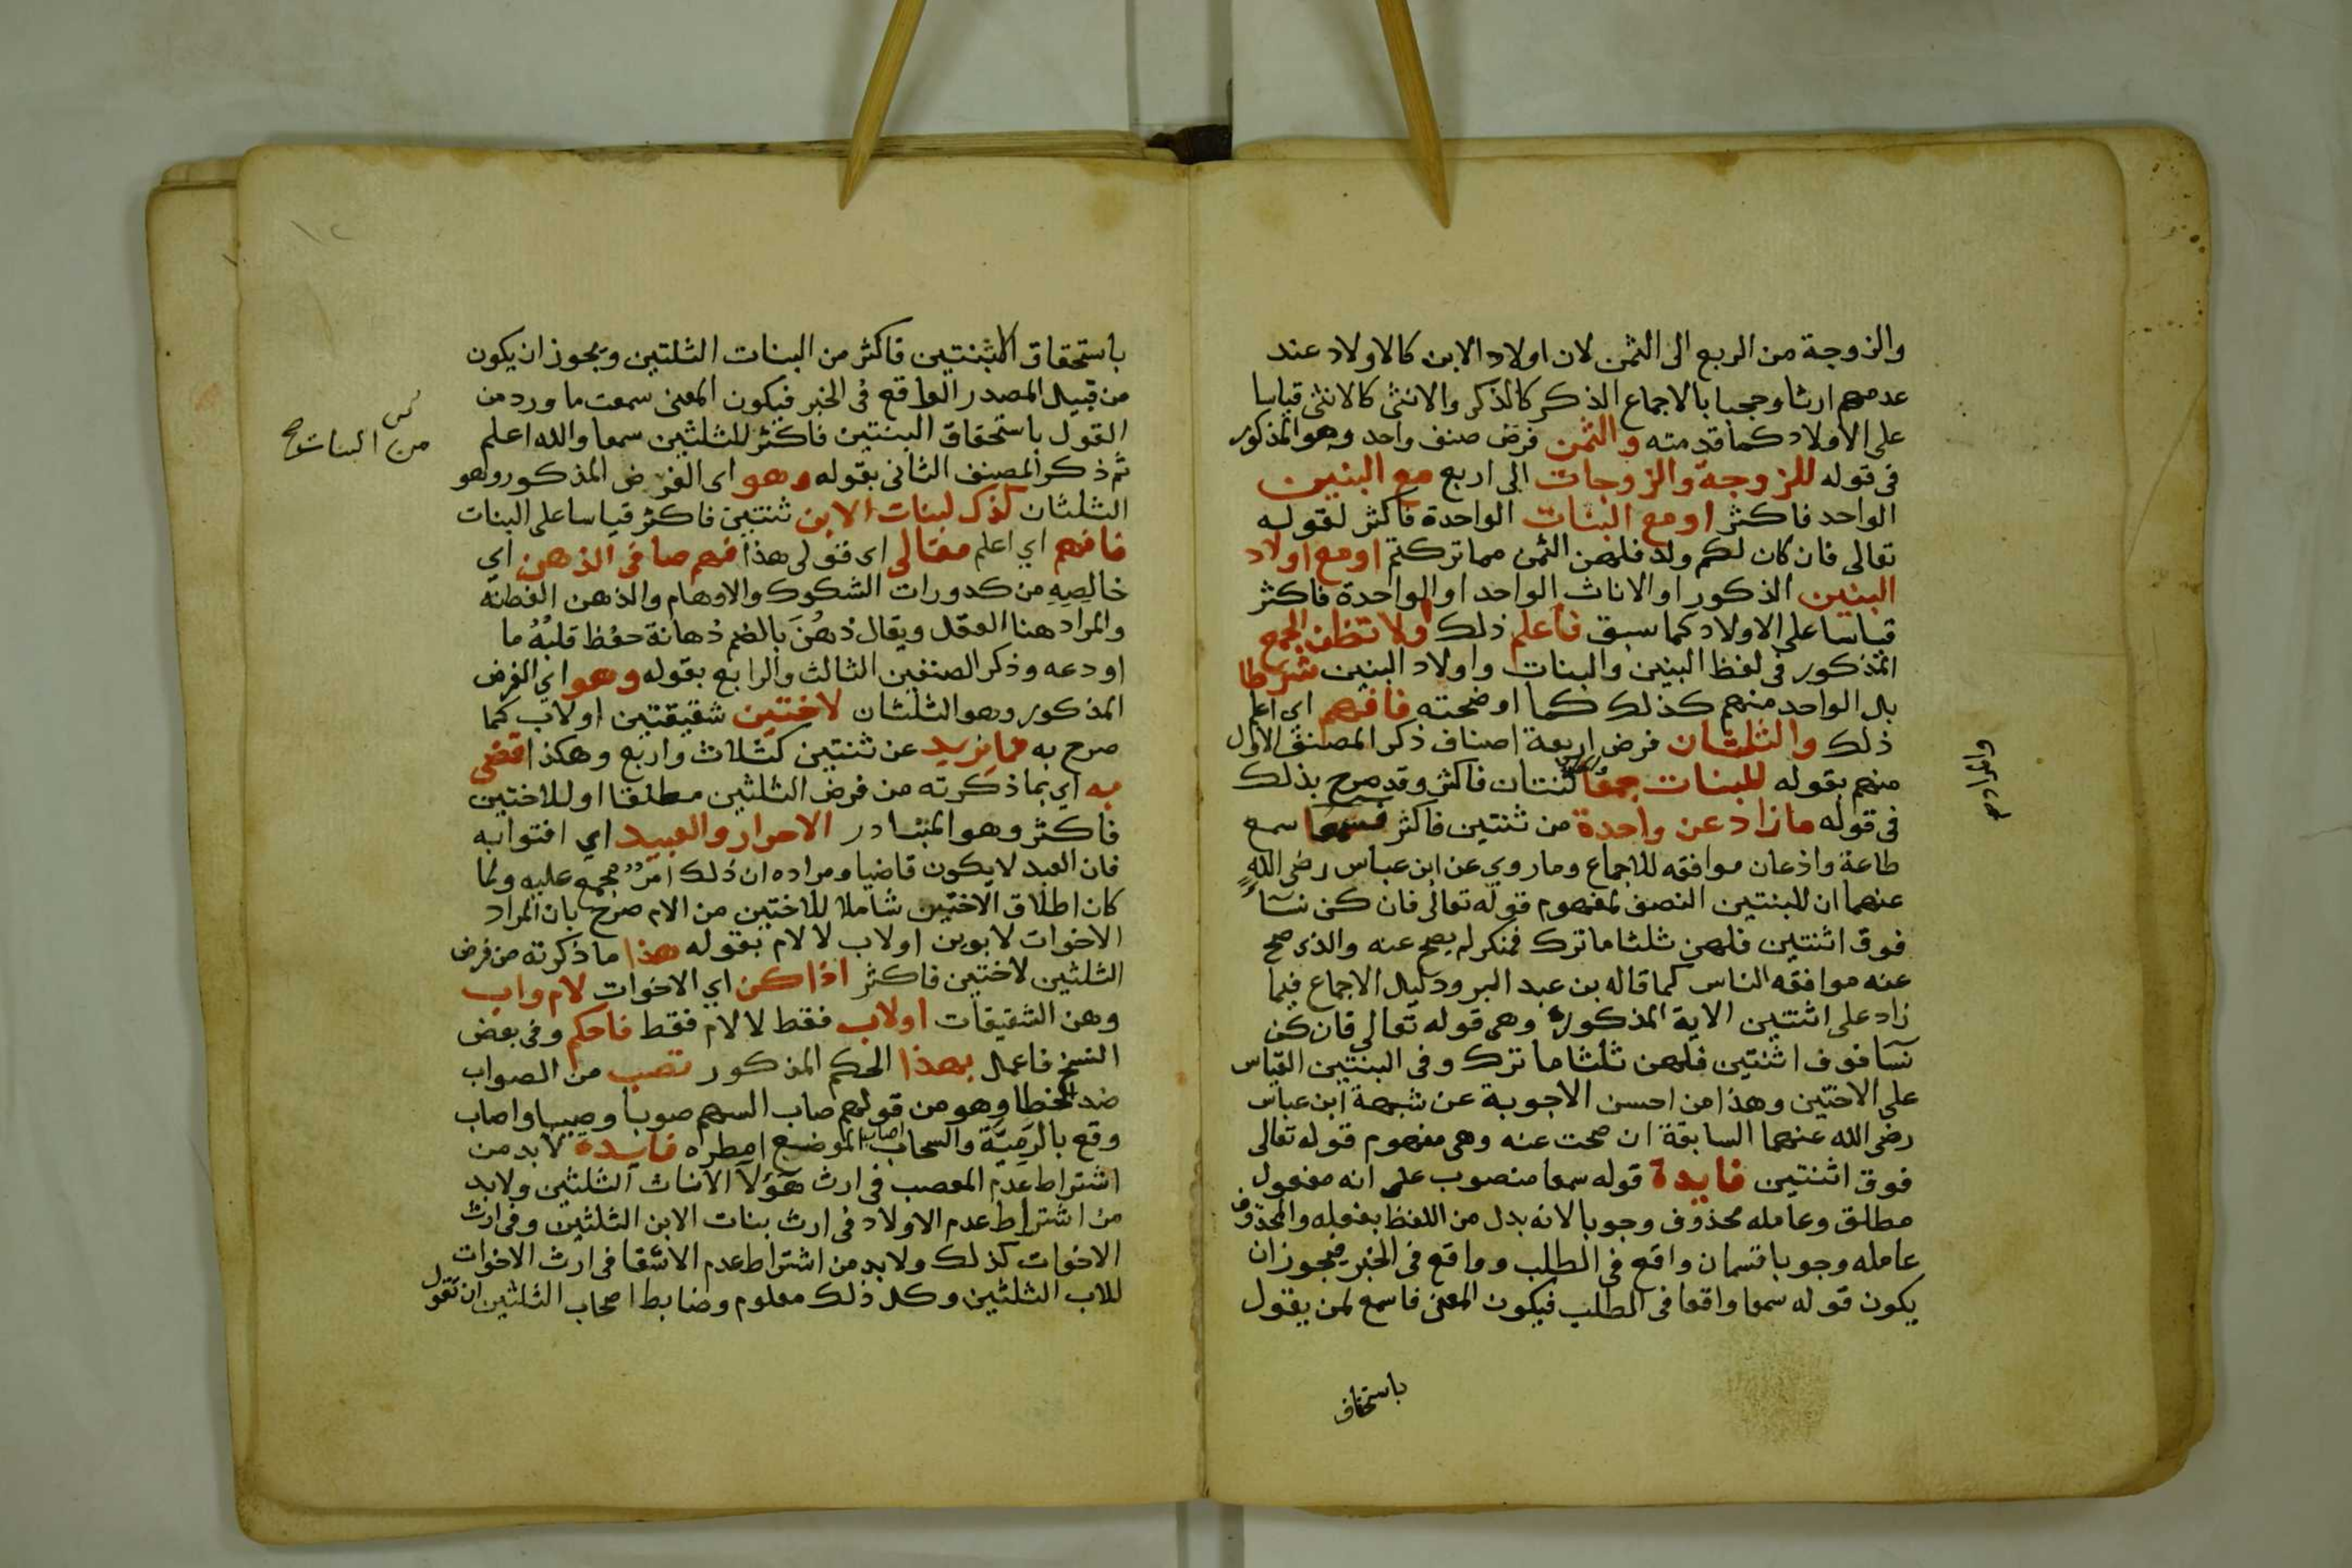 والزوجة من الربع الى الثمن لان اولاد الابن كالاولاد عند
عدمهم ارثا وحجبا بالاجماع الذكر كالذكر والانثى كالانثى قياسا
على الاولاد كما قدمته والثمن فرض صنف واحد وهو المذكور
فى قوله للزوجة والزوجات الى اربع مع البنين
الواحد فاكثر او مع البنات الواحدة فاكثر لقوله
تعالى فان كان لكم ولد فلهن الثمن مما تركتم او مع اولاد
البنين الذكور او الاناث الواحد او الواحدة فاكثر
قياسا على الاولاد كما سبق فاعلم ذلك ولا تظن الجمع
المذكور فى لفظ البنين والبنات واولاد البنين شرطا
بل الواحد منهم كذلك كما اوضحته فافهم اى اعلم
ذلك والثلثان فرض اربعة اصناف ذكر المصنف الاول
منهم بقوله للبنات جمعا ثنتان فاكثر وقد صرح بذلك
فى قوله ما زاد عن واحدة من ثنتين فاكثر فسمعا سمع
طاعة واذعان موافقه للاجماع وما روي عن ابن عباس رضى الله
عنهما ان للبنتين النصف لمفهوم قوله تعالى فان كن نسآء
فوق اثنتين فلهن ثلثا ما ترك فمنكر لم يصح عنه والذى صح
عنه موافقه الناس كما قاله بن عبد البر ودليل الاجماع فيما
زاد على اثنتين الاية المذكورة وهى قوله تعالى فان كن
نسآ فوق اثنتين فلهن ثلثا ما ترك وفى البنتين القياس
على الاختين وهذا من احسن الاجوبة عن شبهة ابن عباس
رضى الله عنهما السابقة ان صحت عنه وهى مفهوم قوله تعالى
فوق اثنتين فايدة قوله سمعا منصوب على انه مفعول
مطلق وعامله محذوف وجوبا لانه بدل من اللفظ بفعله والمحذوف
عامله وجوبا قسمان واقع فى الطلب وواقع فى الخبر فيجوز ان
يكون قوله سمعا واقعا فى الطلب فيكون المعنى فاسمع لمن يقول
باستحقاق
باستحقاق البنتين فاكثر من البنات الثلثين ويجوز ان يكون
من قبيل المصدر الواقع فى الخبر فيكون المعنى سمعت ما ورد من
القول باستحقاق البنتين فاكثر للثلثين سمعا والله اعلم
من البنات صح
ثم ذكر المصنف الثانى بقوله وهو اى الفرض المذكور وهو
الثلثان كذك لبنات الابن ثنتين فاكثر قياسا على البنات
فافهم اي اعلم مقالى اى قولى هذا فهم صافى الذهن اي
خالصِهِ من كدورات الشكوك والاوهام والذهن الفطنة
والمراد هنا العقل ويقال ذهُنَ بالضم ذهانة حفظ قلبُهُ ما
اودعه وذكر الصنفين الثالث والرابع بقوله وهو اي الفرض
المذكور وهو الثلثان لاختين شقيقتين او لاب كما
صرح به فما يزيد عن ثنتين كثلاث واربع وهكذا قضى
به اي بما ذكرته من فرض الثلثين مطلقا او للاختين
فاكثر وهو المتبادر الاحرار والعبيد اي افتوا به
فان العبد لا يكون قاضيا ومراده ان ذلك امرٌ مجمع عليه ولما
كان اطلاق الاختين شاملا للاختين من الام صرح بان المراد
الاخوات لابوين او لاب لا لام بقوله هذا ما ذكرته من فرض
الثلثين لاختين فاكثر اذا كن اي الاخوات لام واب
وهن الشقيقات او لاب فقط لا لام فقط فاحكم وفى بعض
النسخ فاعمل بهذا الحكم المذكور تصب من الصواب
ضد الخطا وهو من قولهم صاب السهم صوبا وصيبا واصاب
وقع بالرَمِيَّة والسحاب اصاب الموضع امطره فايدة لا بد من
اشتراط عدم المعصب فى ارث هؤلآ الاناث الثلثين ولا بد
من اشتراط عدم الاولاد فى ارث بنات الابن الثلثين وفى ارث
الاخوات كذلك ولا بد من اشتراط عدم الاشقا فى ارث الاخوات
للاب الثلثين وكل ذلك معلوم وضابط اصحاب الثلثين ان تقول